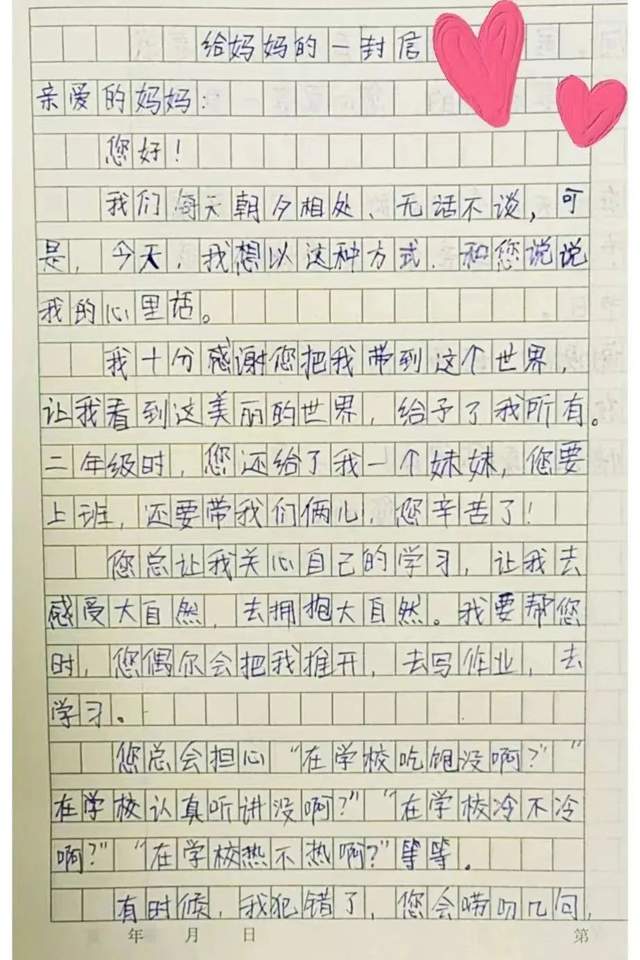 给妈妈的一封信
亲爱的妈妈:
您好!
我们每天朝夕相处、无话不谈,可
是,今天,我想以这种方式,和您说说
我的心里话。
我十分感谢您把我带到这个世界,
让我看到这美丽的世界,给予了我所有。
二年级时,您还给了我一个妹妹,您要
上班,还要带我们俩儿,您辛苦了!
您总让我关心自己的学习,让我去
感受大自然,去拥抱大自然。我要帮您
时,您偶尔会把我推开,去写作业,去
学习。
您总会担心“在学校吃饱没啊?”“
在学校认真听讲没啊?”“在学校冷不冷
啊?”“在学校热不热啊?”等等。
有时候,我犯错了,您会唠叨几句,
年 月 日 第